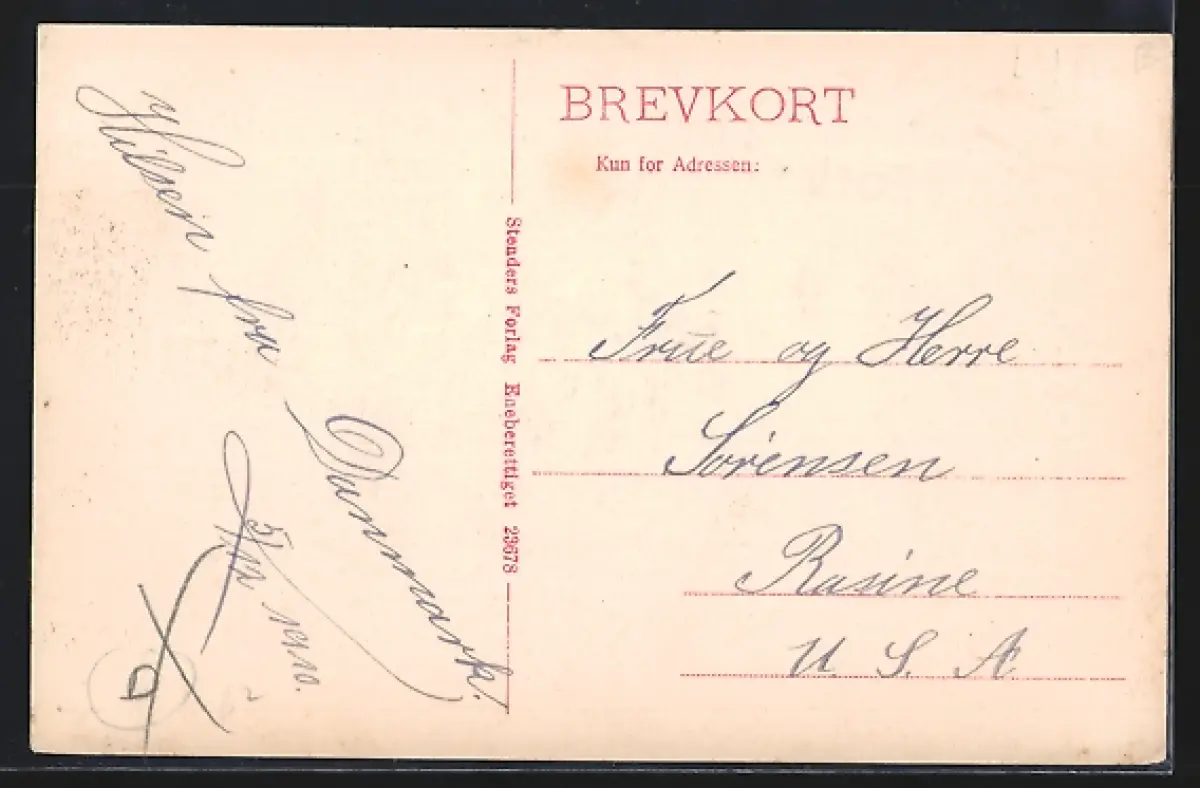 Hilsen fra Danmark.
1910.
BREVKORT
Kun for Adressen:
Stenders Forlag Eneberettiget 23678
Frue og Herre
Sörensen
Rasine
U. S. A